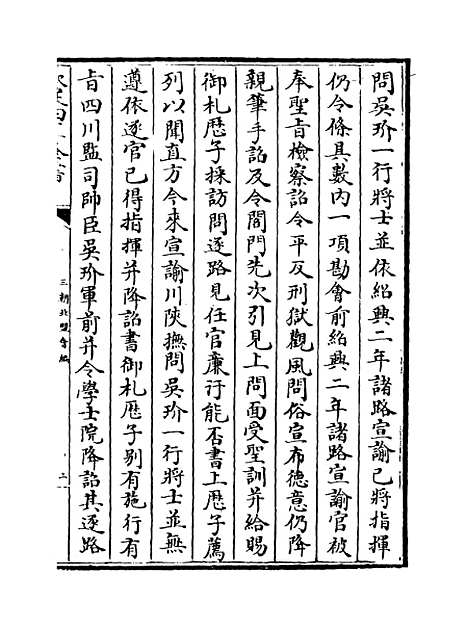 問吳玠一行將士並依紹興二年諸路宣諭已將指揮
仍令條具數內一項勘會前紹興二年諸路宣諭官被
奉聖旨檢察詔令平反刑獄觀風問俗宣布德意仍降
親筆手詔及令閤門先次引見上問面受聖訓并給賜
御札歴子採訪問逐路見任官廉污能否書上歴子薦
列以聞直方今來宣諭川陜撫問吳玠一行將士並無
遵依逐官已得指揮并降詔書御札歴子别有施行有
旨四川監司帥臣吳玠軍前并令學士院降詔其逐路
三朝北盟會編